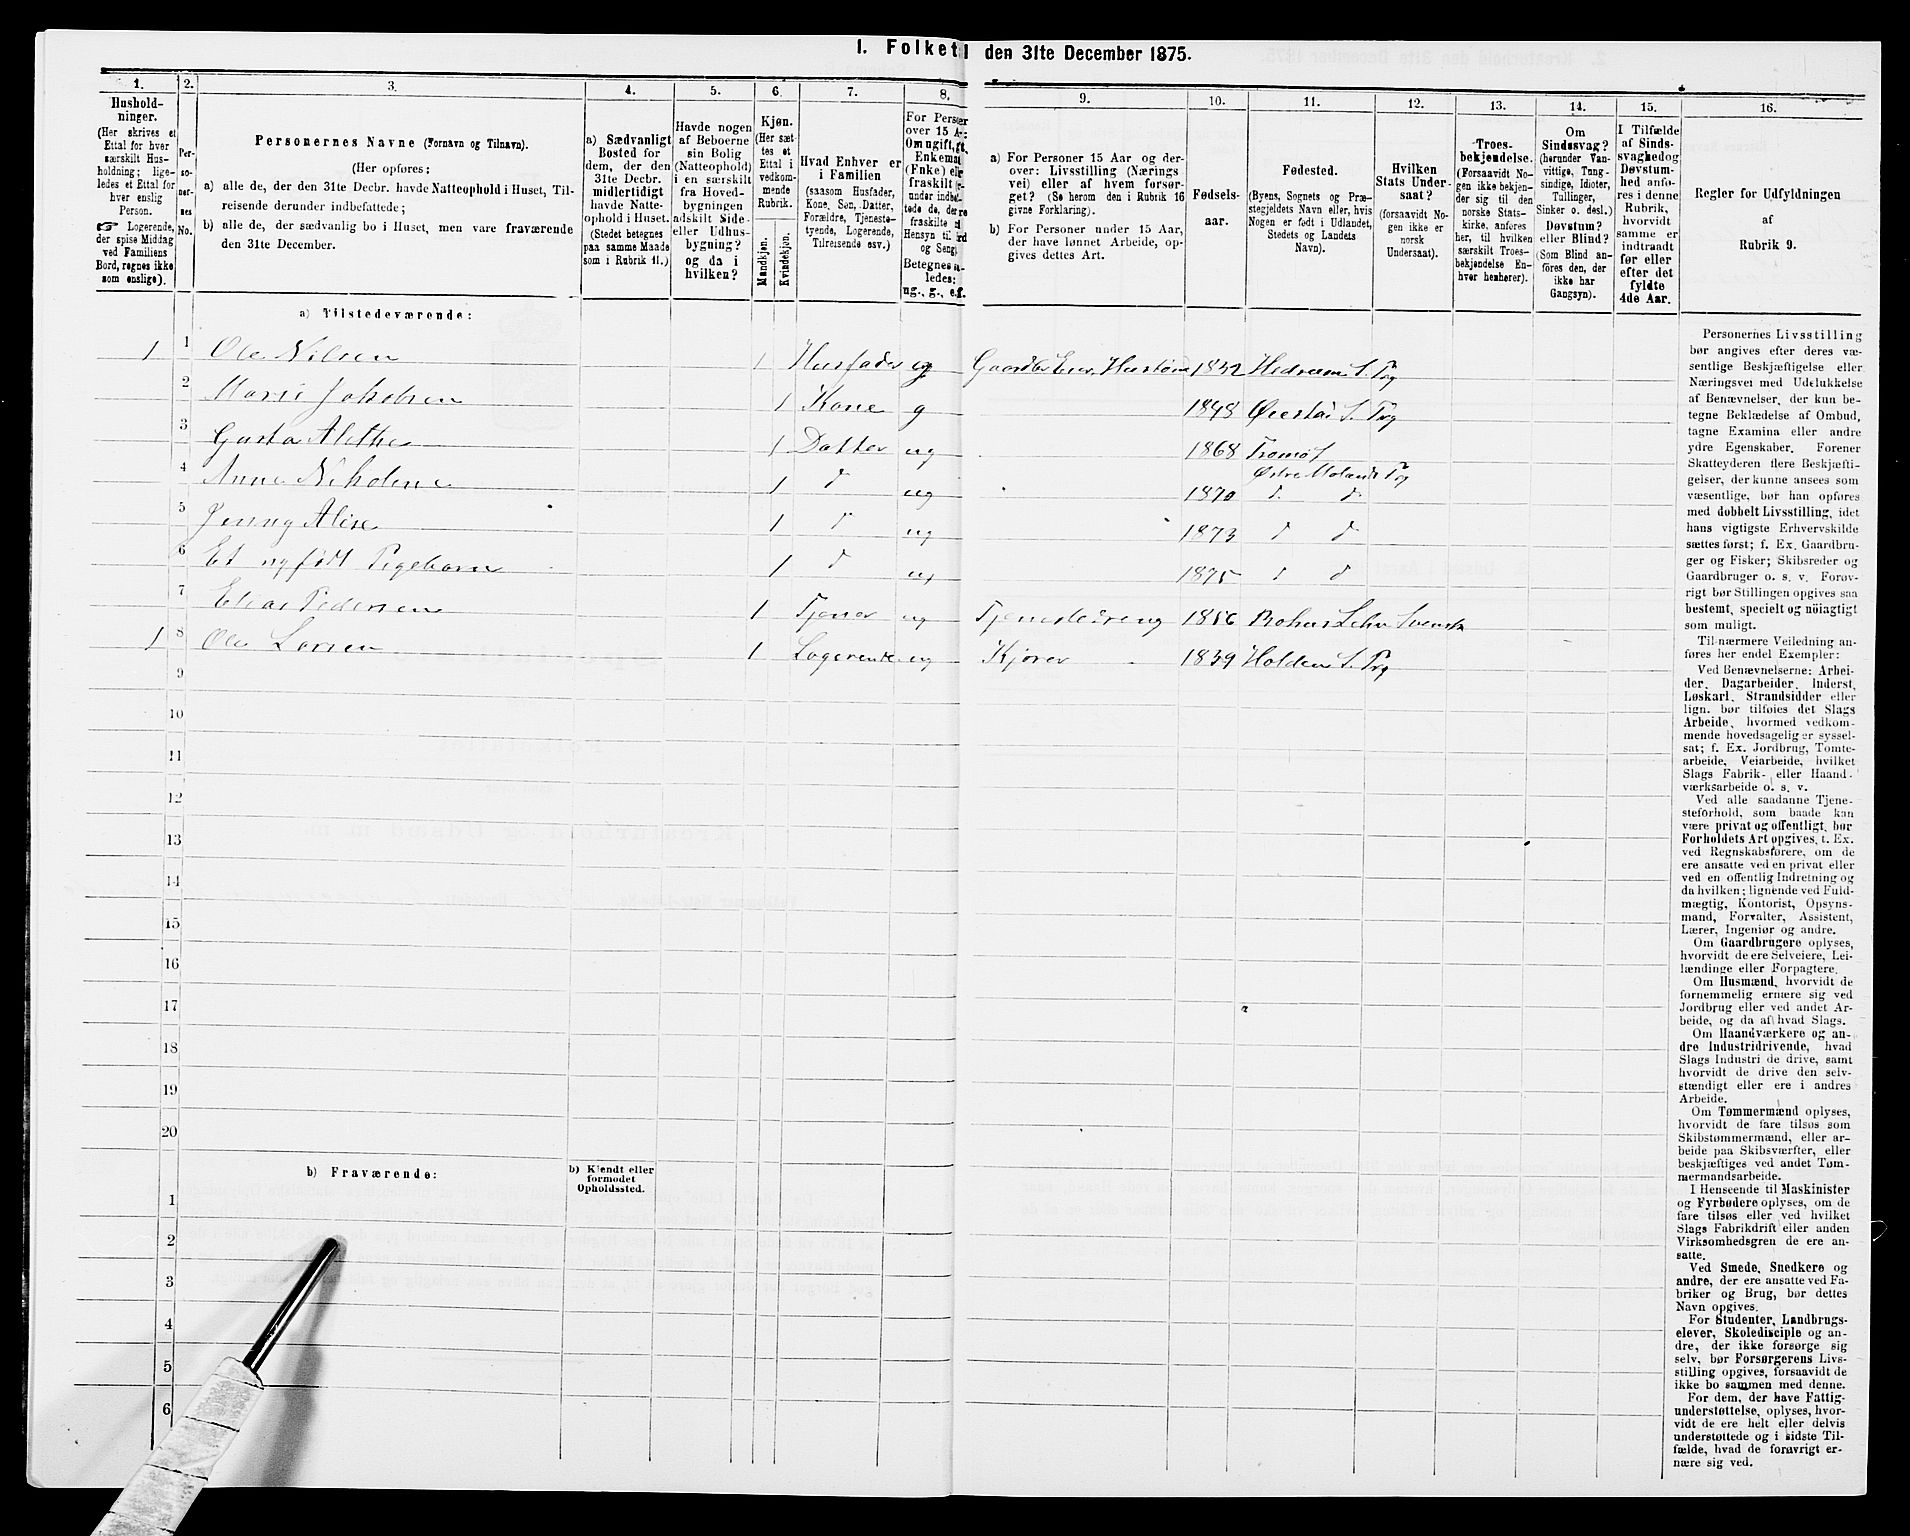 1. Folketal den 31te December 1875.
1.
Hushold-
ninger.
(Her skrives et
Ettal for hver
særskilt Hus-
holdning; lige-
ledes et Ettal for
hver enslig
Person.
☞ Logerende,
der spise Middag
ved Familiens
Bord, regnes ikke
som enslige).
2.
Per-
so-
ner-
nes
No.
3.
Personernes Navne (Fornavn og Tilnavn).
(Her opføres:
a) alle de, der den 31te Decbr. havde Natteophold i Huset, Til-
reisende derunder indbefattede;
b) alle de, der sædvanlig bo i Huset, men vare fraværende
den 31te December.
4.
a) Sædvanligt
Bosted for
dem, der den
31te Decbr.
midlertidigt
havde Natte-
ophold i Huset.
(Stedet betegnes
paa samme Maade
som i Rubrik 11.)
5.
Havde nogen
af Beboerne
sin Bolig
(Natteophold)
i en særskilt
fra Hoved-
bygningen
adskilt Side-
eller Udhus-
bygning?
og da i
hvilken?
6.
Kjøn.
(Her sæt-
tes et
Ettal i
vedkom-
mende
Rubrik.
Mandkjøn.
Kvindekjøn.
7.
Hvad Enhver er
i Familien
(saasom Husfader,
Kone, Søn, Datter,
Forældre, Tjeneste-
tyende, Logerende,
Tilreisende osv.)
8.
For Perso
over 15 A
Om ugift, gt,
Enkema
(Enke) elle
fraskilt
under indbe
tede de, der
fraskilte
Hensyn til
og Seng).
Betegnes
ledes:
ug., g., e.f.
9.
a) For Personer 15 Aar og der-
over: Livsstilling (Nærings
vei) eller af hvem forsør-
get? (Se herom den i Rubrik 16
givne Forklaring).
b) For Personer under 15 Aar,
der have lønnet Arbeide, op-
gives dettes Art.
10.
Fødsels-
aar.
11.
Fødested.
(Byens, Sognets og Præ-
stegjeldets Navn eller, hvis
Nogen er født i Udlandet,
Stedets og Landets
Navn).
12.
Hvilken
Stats Under-
saat?
(forsaavidt No-
gen ikke er
norsk
Undersaat).
13.
Troes-
bekjendelse.
(Forsaavidt No-
gen ikke bekjen-
der sig til den
norske Stats-
kirke, anføres
her, til hvilken
særskilt Troes-
bekjendelse En-
hver henhører).
14.
Om
Sindssvag?
(herunder Van-
vittige, Tung-
sindige, Idioter,
Tullinger,
Sinker o. desl.)
Døvstum?
eller Blind?
(Som Blind an-
føres den, der
ikke har
Gangsyn).
15.
I Tilfælde
af Sinds-
svaghed og
Døvstum-
hed anfø-
res i denne
Rubrik,
hvorvidt
samme er
indtraadt
før eller
efter det
fyldte
4de Aar.
16.
Regler for Udfyldningen
af
Rubrik 9.
a) Tilstedeværende:
1 1 Ole Nilsen 1 Husfader g 1832 Hedrum S. Prg
2 Marie Jakobsen 1 Kone g 1848 Øiestad S. Prg
3 Gusta Alethe 1 Datter ug 1868 Tromø S
Østre Molands Prg
4 Anne Nikoline 1 d ug 1870 d d
5 Jenny Alise 1 d ug 1873 d d
6 Et nyfødt Pigebarn 1 d ug 1875 d d
7 Elias Pedersen 1 Tjener ug Tjenestedreng 1856 Bohus Lehn Svensk
1 8 Ole Larsen 1 Logerende ug Kjører 1839 Holden S. Prg
9
10
11
12
13
14
15
16
17
18
19
20
b) Fraværende:
b) Kjendt eller
formodet
Opholdssted.
1
2
3
4
5
6
Personernes Livsstilling
bør angives efter deres væ-
sentlige Beskjæftigelse eller
Næringsvei med Udelukkelse
af Benævnelser, der kun be-
tegne Beklædelse af Ombud,
tagne Examina eller andre
ydre Egenskaber. Forener
Skatteyderen flere Beskjæfti-
gelser, der kunne ansees som
væsentlige, bør han opføres
med dobbelt Livsstilling, idet
hans vigtigste Erhvervskilde
sættes først; f. Ex. Gaardbru-
ger og Fisker; Skibsreder og
Gaardbruger o. s. v. Forøv-
rigt bør Stillingen opgives saa
bestemt, specielt og nöiagtigt
som muligt.
Til nærmere Veiledning an-
føres her endel Exempler:
Ved Benævnelserne: Arbei-
der, Dagarbeider, Inderst,
Løskarl, Strandsidder eller
lign. bør tilføies det Slags
Arbeide, hvormed vedkom-
mende hovedsagelig er syssel-
sat; f. Ex. Jordbrug, Tomte-
arbeide, Veiarbeide, hvilket
Slags Fabrik- eller Haand-
værksarbeide o. s. v.
Ved alle saadanne Tjene-
steforhold, som baade kan
være privat og offentligt, bør
Forholdets Art opgives, t. Ex.
ved Regnskabsførere, om de
ere ansatte ved en privat eller
ved en offentlig Indretning og
da hvilken; lignende ved Fuld-
mægtig, Kontorist, Opsyns-
mand, Forvalter, Assistent,
Lærer, Ingeniør og andre.
Om Gaardbrugere oplyses,
hvorvidt de ere Selveiere, Lei-
lændinge eller Forpagtere.
Om Husmænd, hvorvidt de
fornemmelig ernære sig ved
Jordbrug eller ved andet Ar-
beide, og da af hvad Slags.
Om Haandværkere og an-
dre Industridrivende, hvad
Slags Industri de drive, samt
hvorvidt de drive den selv-
stændigt eller ere i andres
Arbeide.
Om Tømmermænd oplyses,
hvorvidt de fare tilsøs som
Skibstømmermænd, eller ar-
beide paa Skibsværfter, eller
beskjæftiges ved andet Tøm-
mermandsarbeide.
I Henseende til Maskinister
og Fyrbødere oplyses, om de
fare tilsøs eller ved hvilket
Slags Fabrikdrift eller anden
Virksomhedsgren de ere an-
satte.
Ved Smede, Snedkere og
andre, der ere ansatte ved Fa-
briker og Brug, bør dettes
Navn opgives.
For Studenter, Landbrugs-
elever, Skoledisciple og an-
dre, der ikke forsørge sig
selv, bør Forsørgerens Livs-
stilling opgives, forsaavidt de
ikke bo sammen med denne.
For dem, der have Fattig-
understøttelse, oplyses, hvor-
vidt de ere helt eller delvis
understøttede og i sidste Til-
fælde, hvad de forøvrigt er-
nære sig ved.